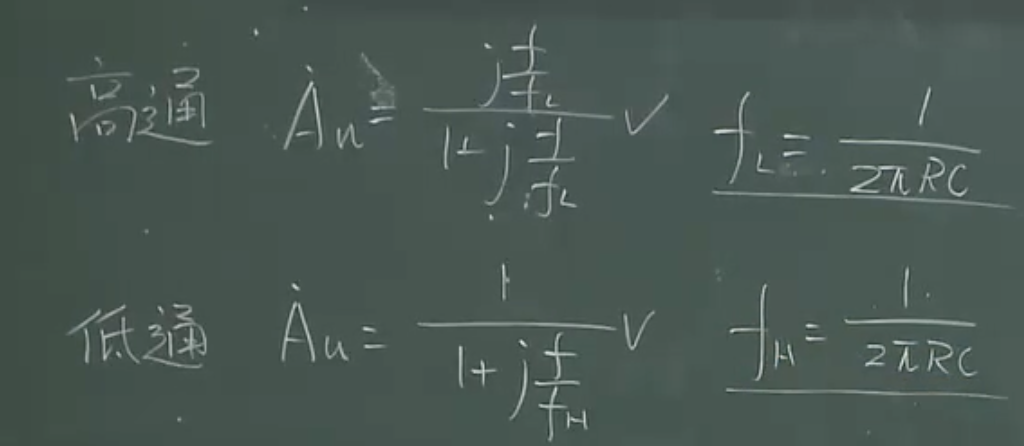 高通 Ȧu = (j f/fL) / (1 + j f/fL) ✓ fL = 1 / (2πRC)
低通 Ȧu = 1 / (1 + j f/fH) ✓ fH = 1 / (2πRC)